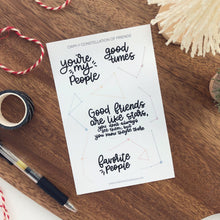 CWPM // CONSTELLATION OF FRIENDS
you're my People
good times
Good friends
are like stars,
you don't always
see them, but
you know they're there
favorite People